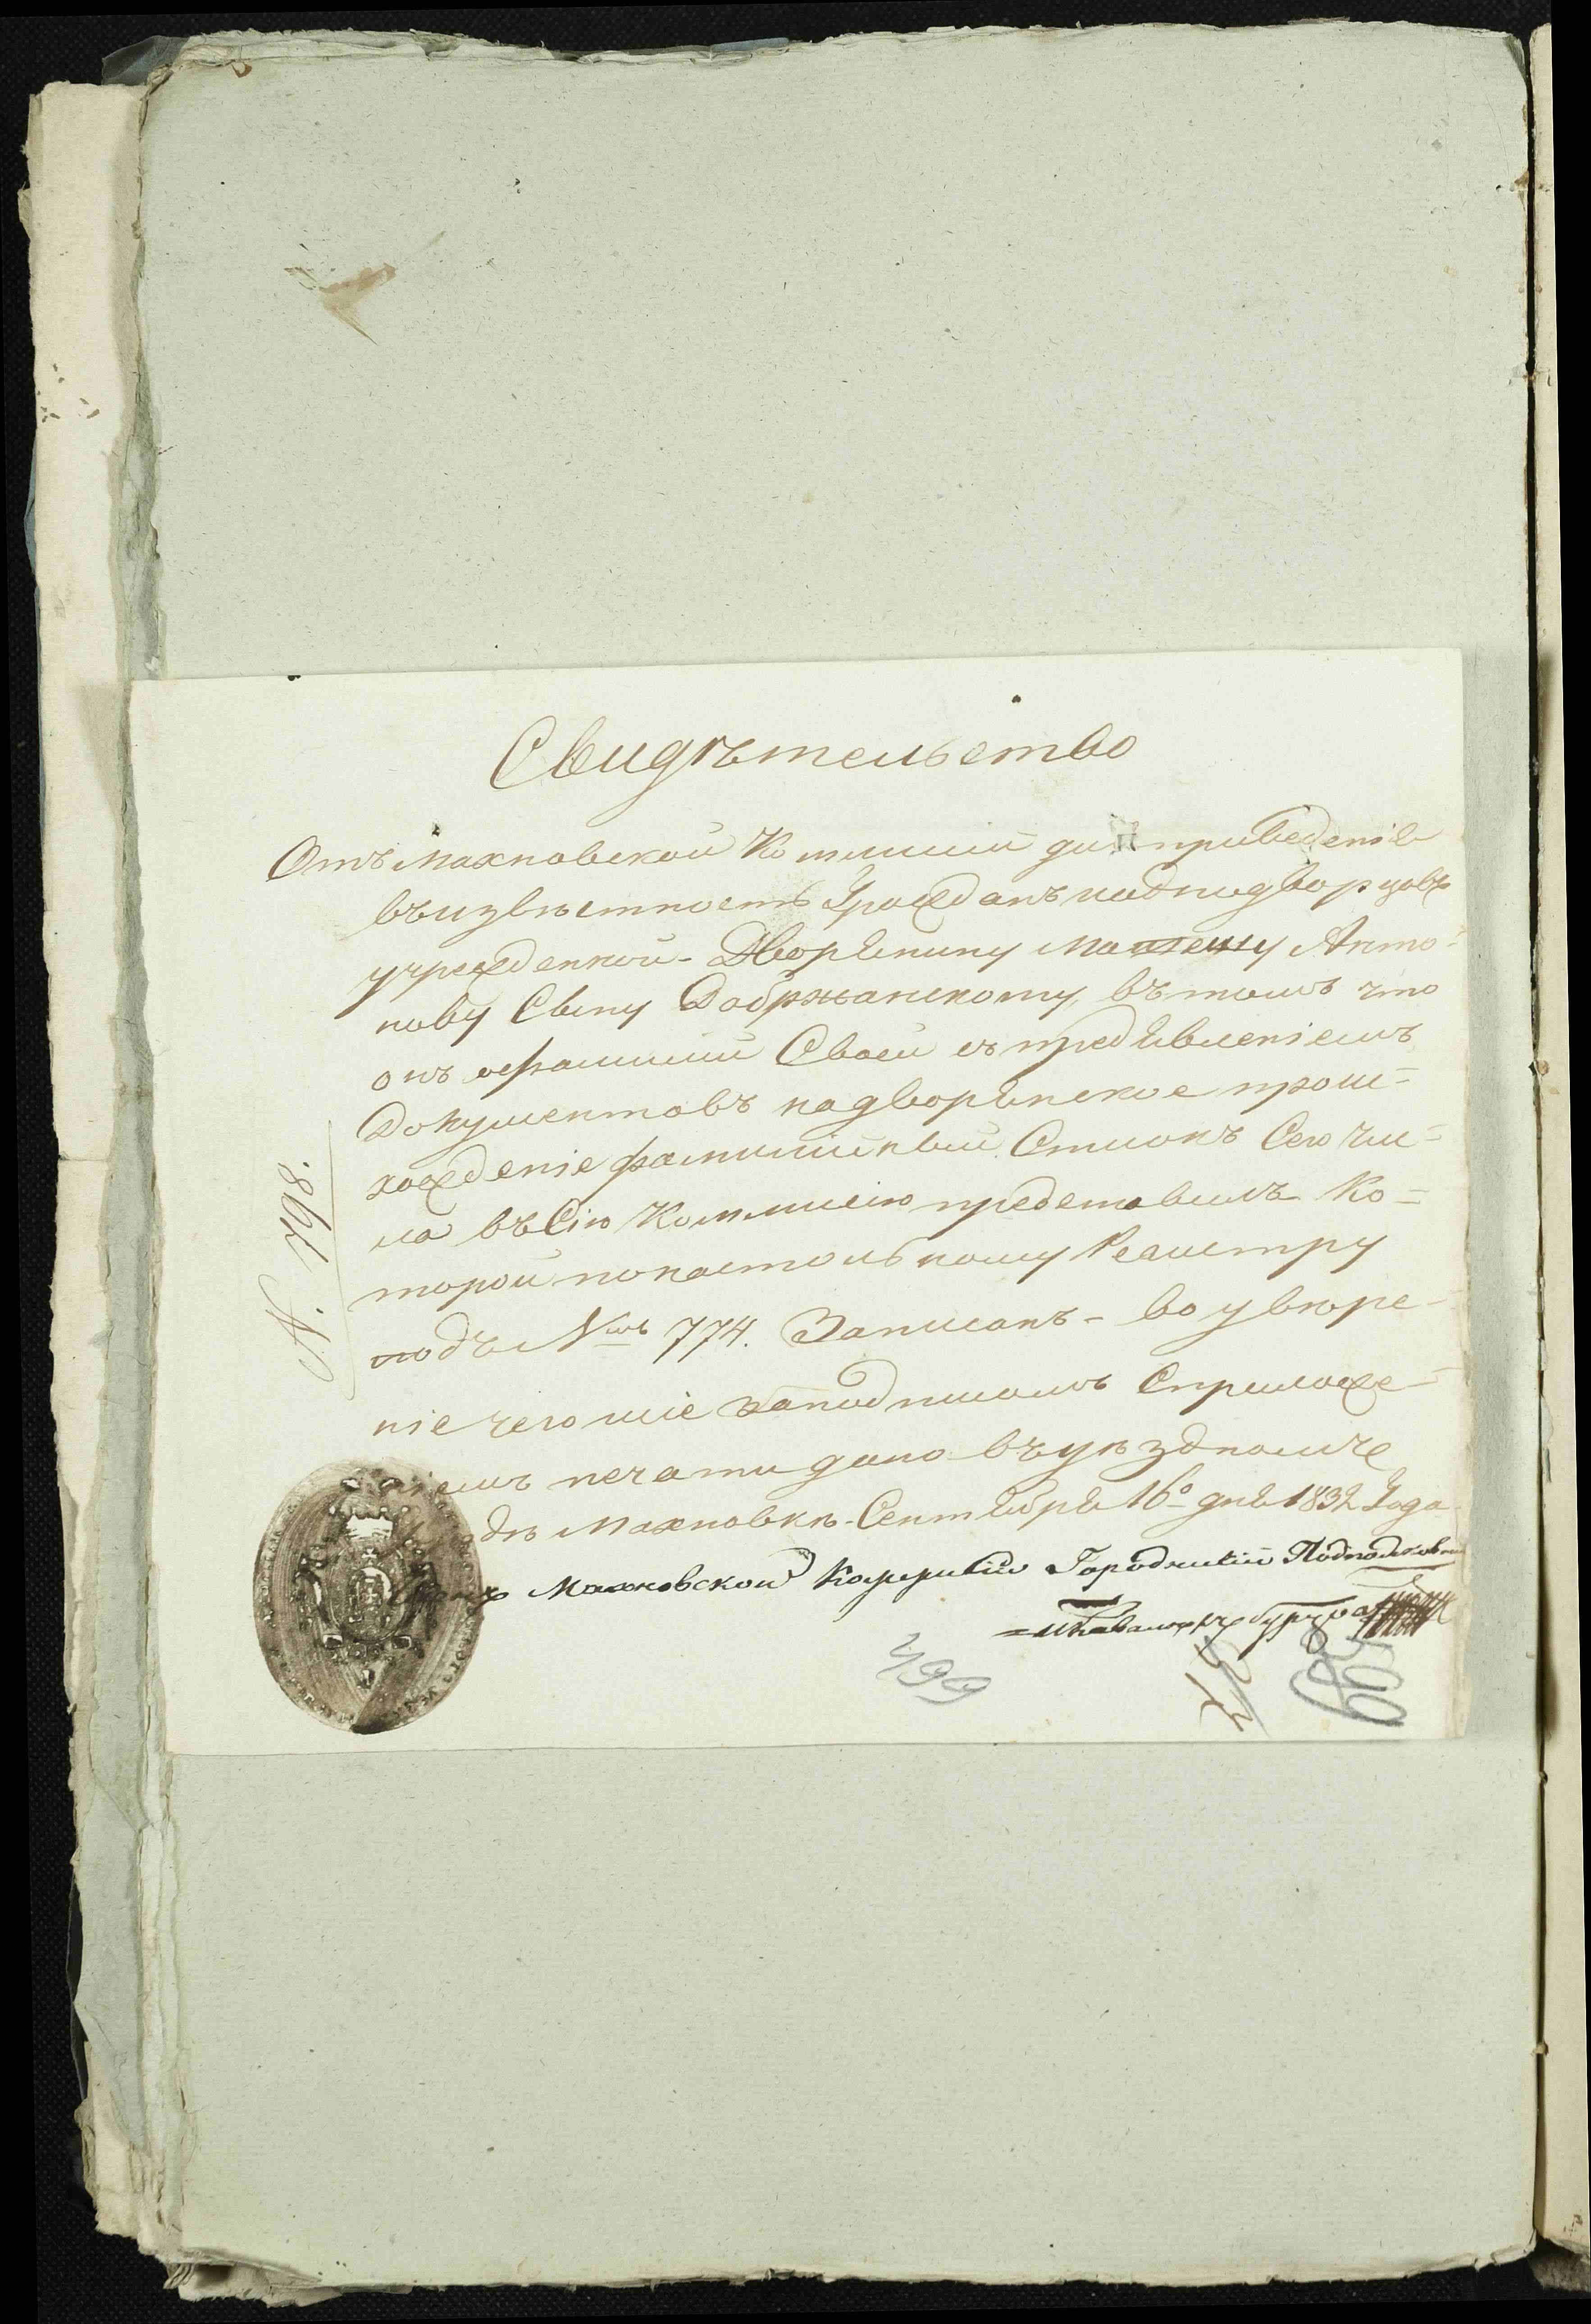 Свидѣтельство
Отъ Махновской Коммисіи для приведенія
въ извѣстность Гражданъ и однодворцовъ
учрежденной - Дворянину Анто-
нову Сыну Добржанскому, въ томъ что
онъ о фамиліи Своей съ предъявленіемъ
Документовъ на дворянское проис-
хожденіе фамилійный Списокъ Сего Чи-
ла въ Сію Коммисію представилъ Ко-
торой по настольному Регистру
подъ №мъ 774. Записанъ - во увѣре-
ніе чего сіе за подписомъ Сприложе-
ніемъ печати дано въ уѣздномъ
Махновкѣ Сентября 16º дня 1832 Года
Махновской Коммисіи Городничій Подполковникъ
и Кавалеръ
N. 798.
499